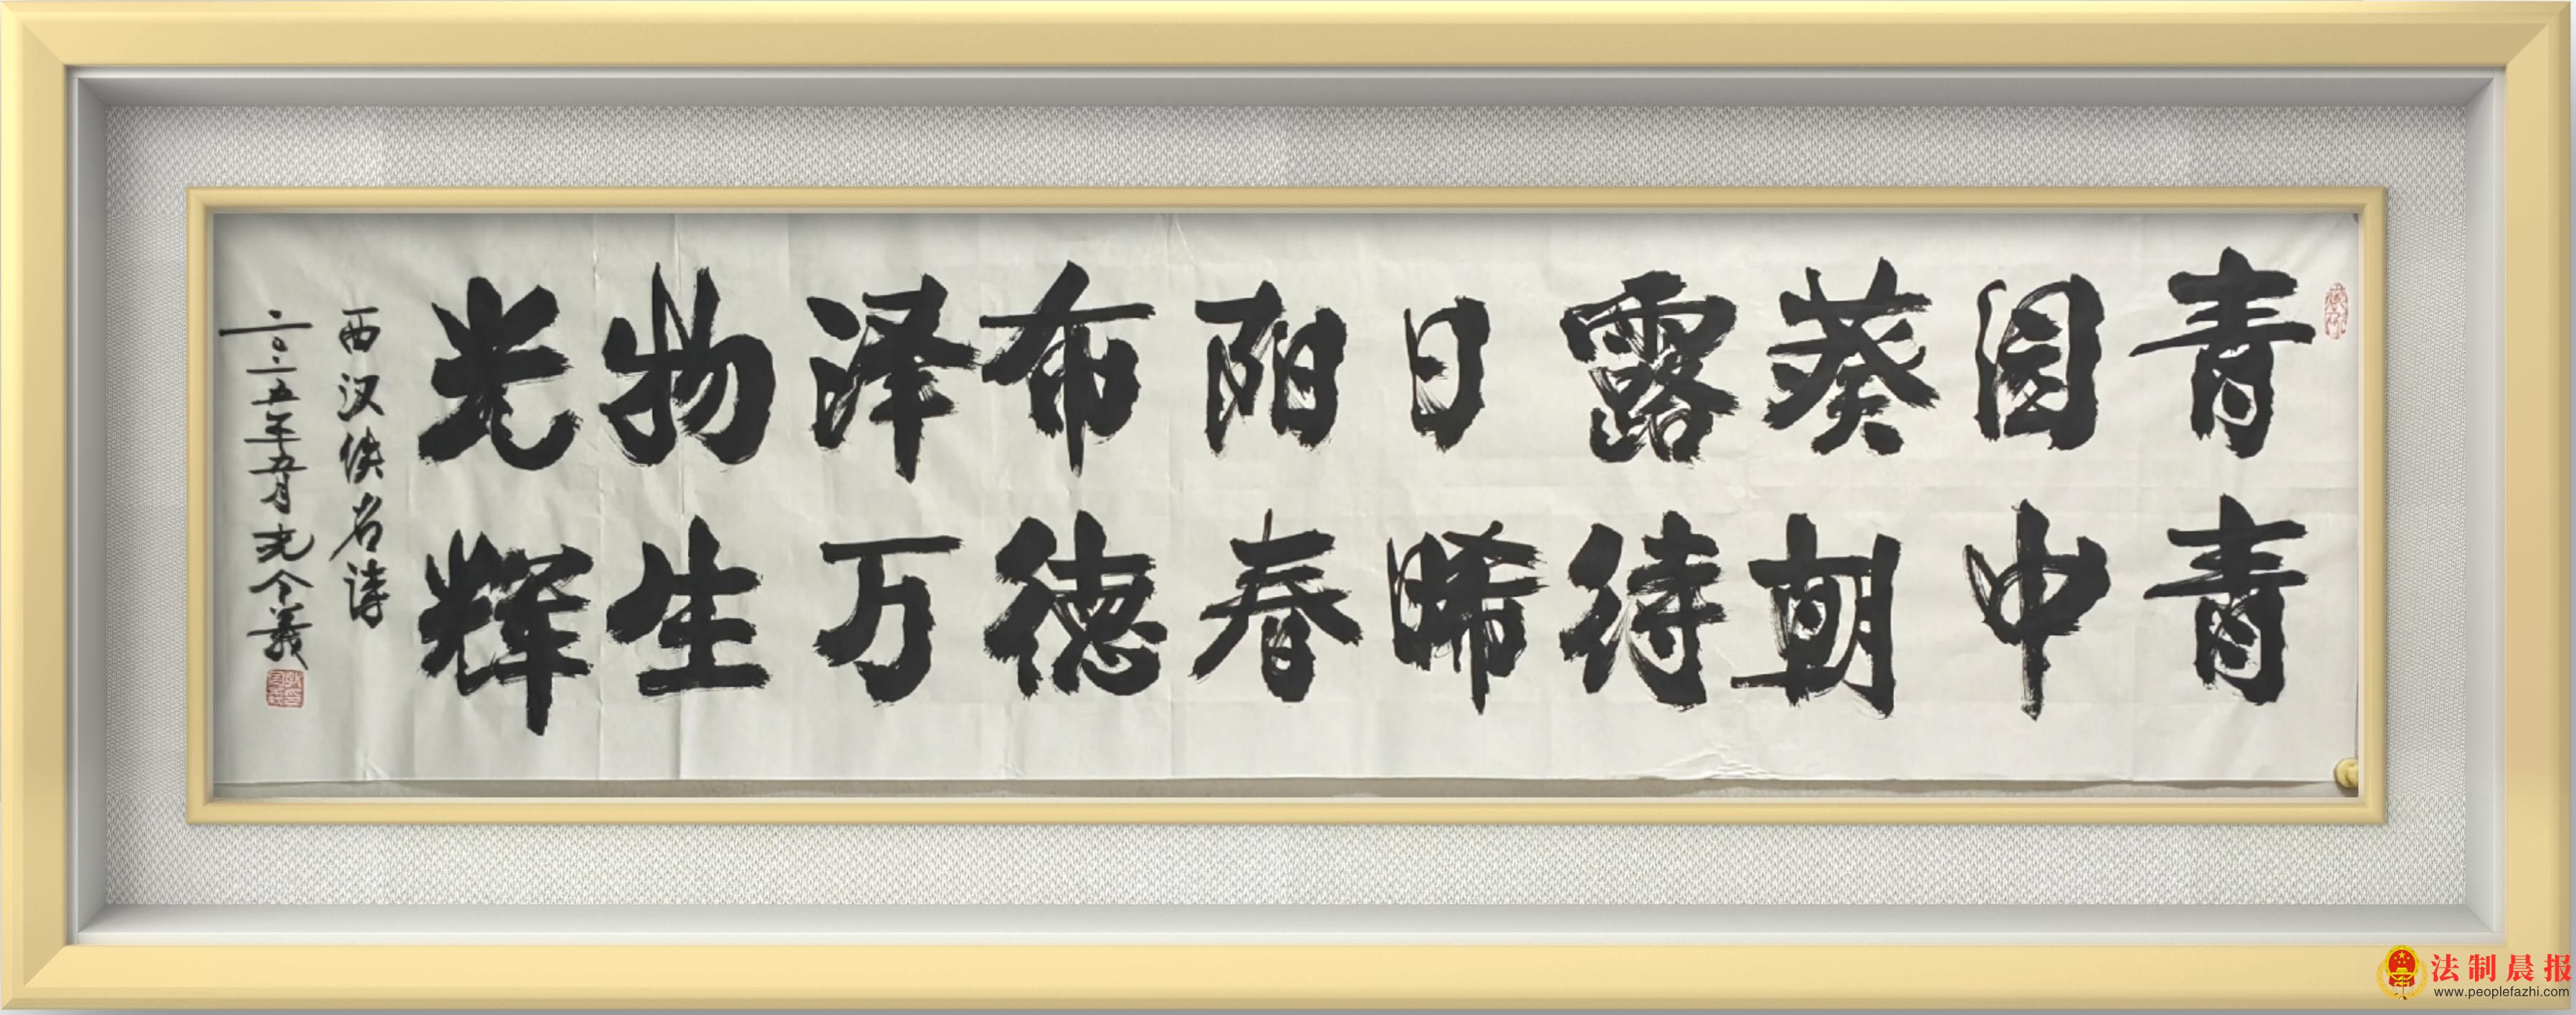 青青
园中
葵朝
露待
日晞
阳春
布德
泽万
物生
光辉
西汉佚名诗
二〇二五年五月
法制晨报
www.peoplefazhi.com